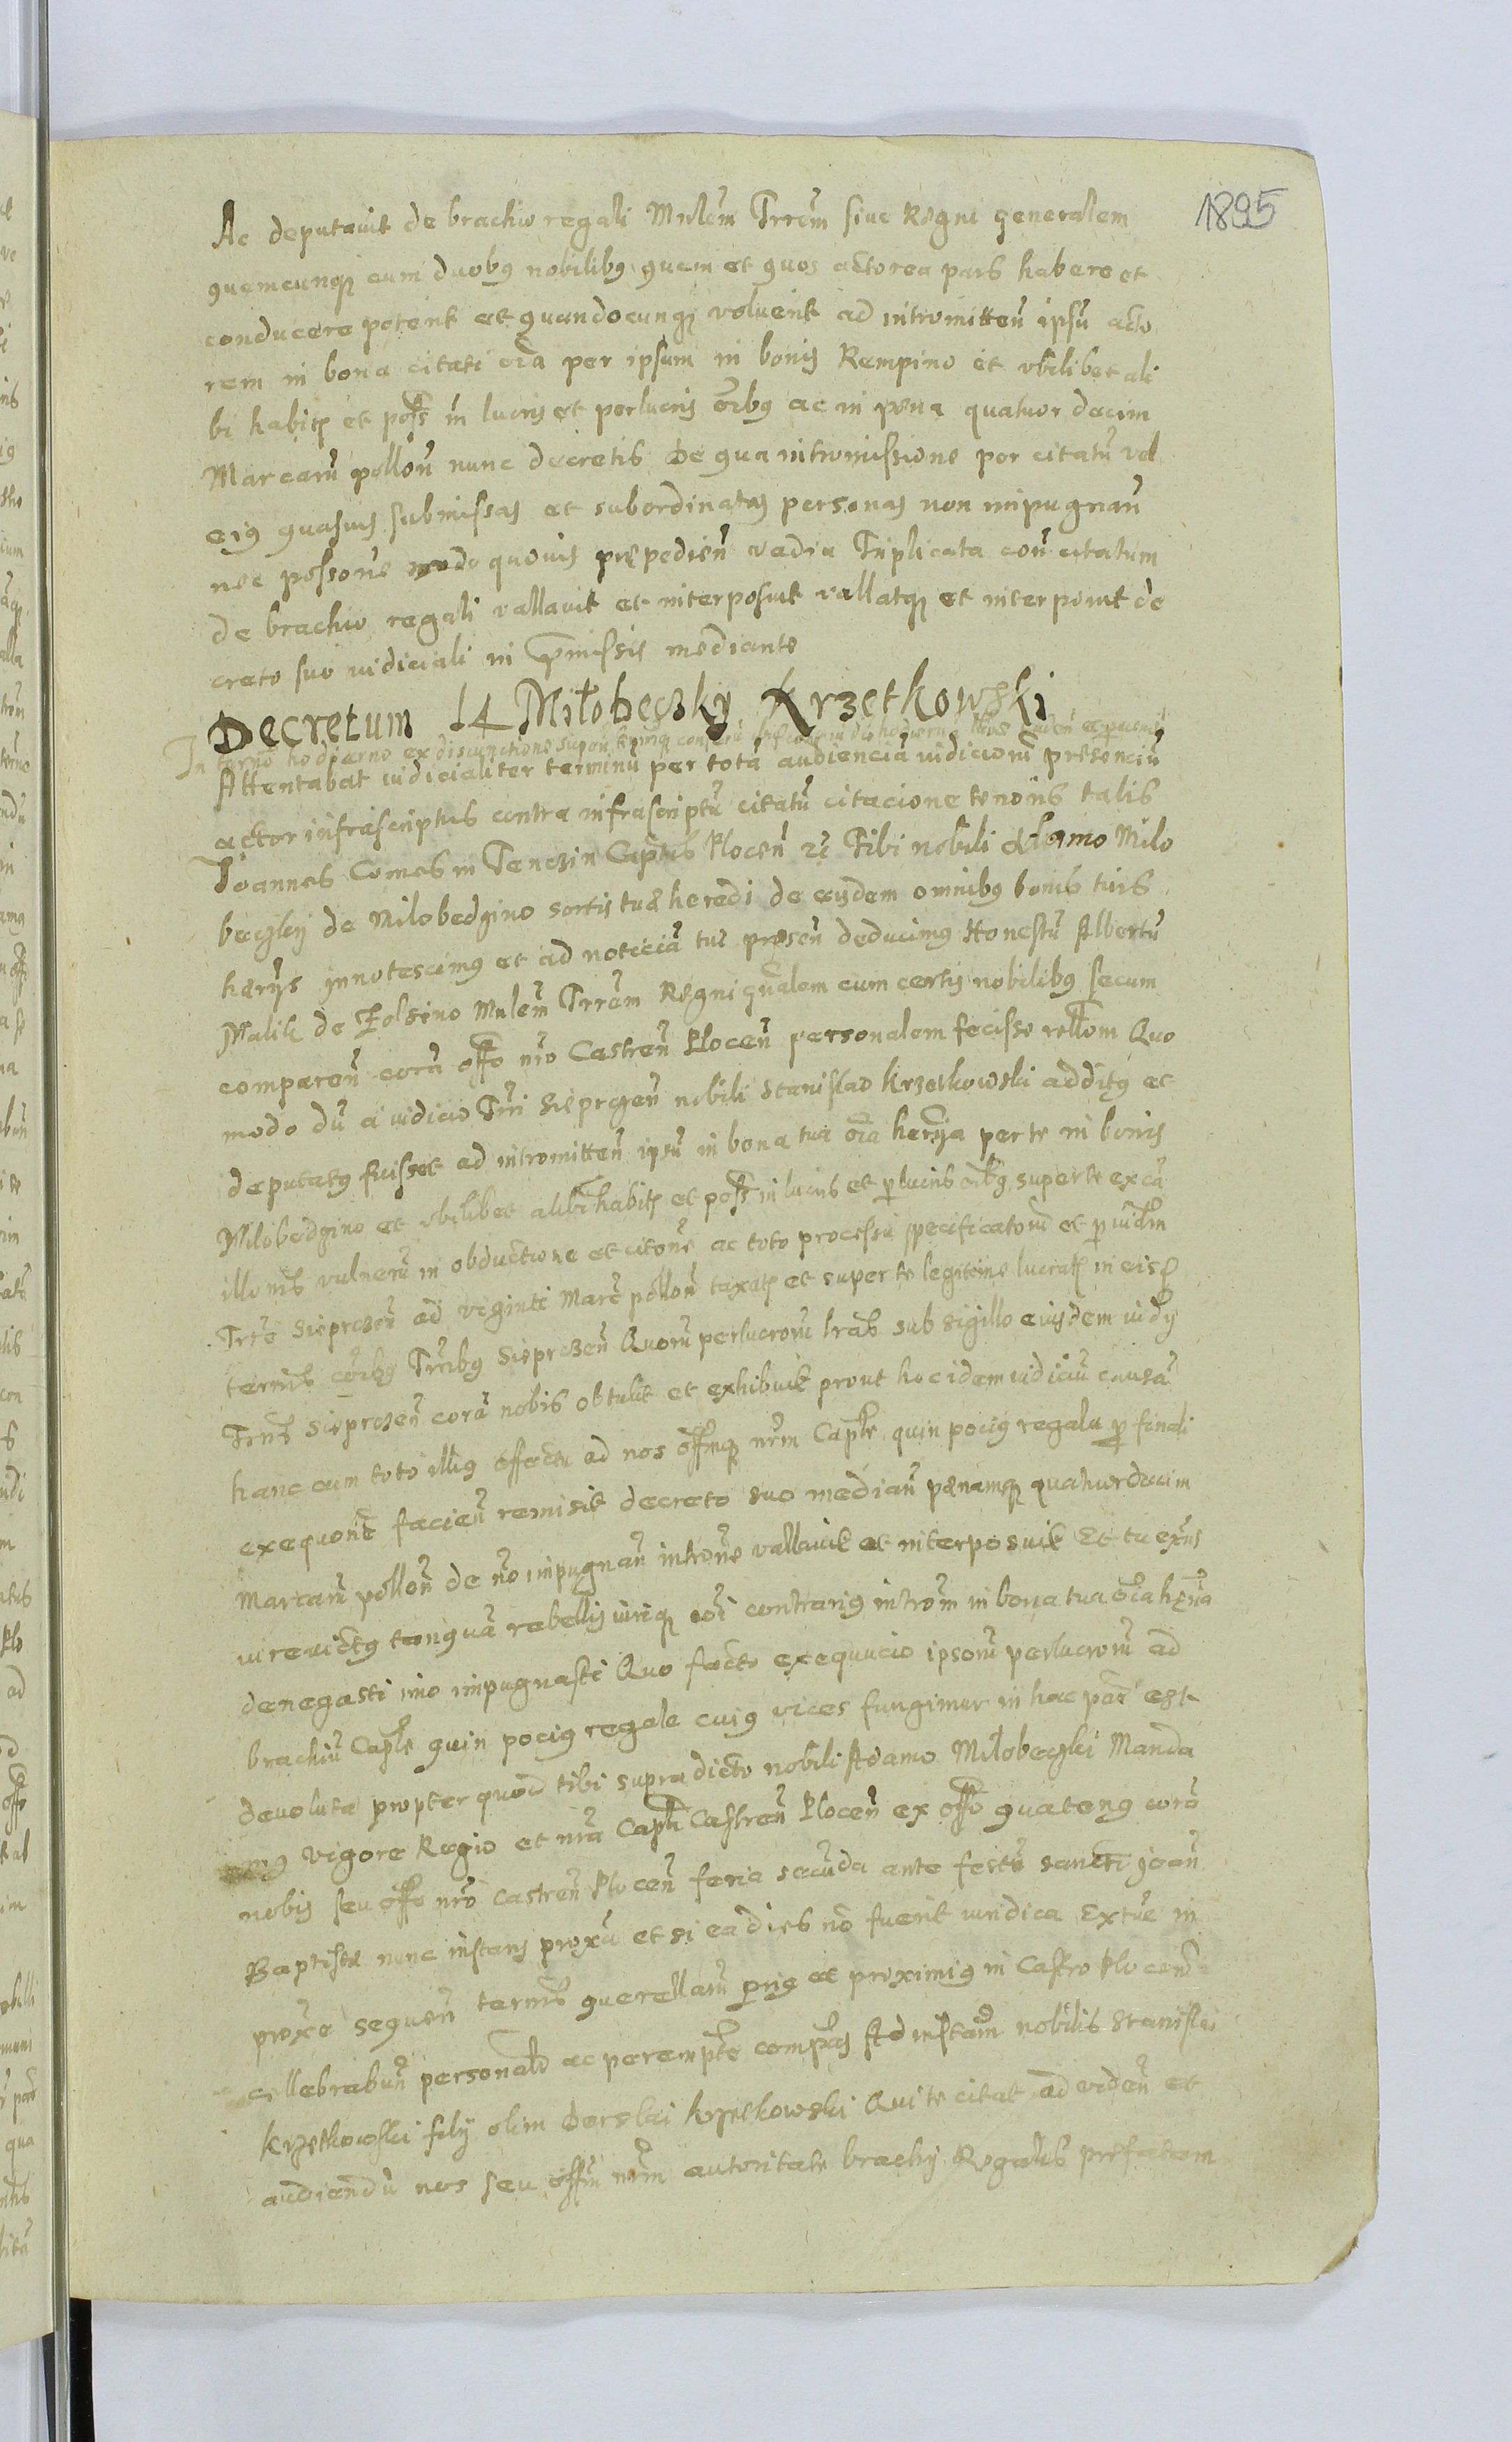 1895
Ac deputavit de brachio regali Mnlem̃ Trrem̃ siue Regni generalem
quemcunq; cum duobus nobilibus quem et quos actorea pars habere et
conducere poterit et quandocunq; voluerit ad intromitteñ ipsũ acto
rem in bona citati oĩa per ipsum in bonis Rempino et vbilibet ali
bi habit; et poss̃ in lucris et perlucris oĩbus ac in pena quatuor decim
Marcarũ polloñ nunc decretis De qua intromissione per citatũ vel
eius quasuis submissas et subordinatas personas non impugnañ
nec possone modo quouis præpedieñ vadia Triplicata coñ citatum
de brachio regali vallauit et interposuit vallatq; et interponit de
creto suo iudiciali in p̃missis mediante
Decretum 14 Miłobęczky Krzetkowski
In termo hodierno ex disiunctione
Attentabat iudicialiter terminũ per totã audienciã iudiciorũ presenciũ
actor infrascriptus contra infrascriptũ citatũ citacione tenoris talis
Joannes Comes in Tenczin Captus Ploceñ Tibi nobili Adamo Milo
beczky de Milobedzino sortis tuæ heredi de eisdem omnibus bonis tuis
hærijs innotescimus et ad noticiã tuã preseñ deducimus Honestũ Albertũ
Malik de Zolzino Mnlem̃ Trrem̃ Regni gñalem cum certis nobilibus secum
compareñ corã offo nr̃o Castreñ Ploceñ personalem fecisse rellom Quo
modo dũ a iudicio Trri Sieprczeñ nobili Stanislao Krzetkowski additus et
deputatus fuisset ad intromitteñ ipsũ in bona tua oĩa herija per te in bonis
Milobedzino et vbilibet alibi habit; et poss̃ in lucris et perlucris oĩbus super te ex cã
illoris vulnerũ in obductione et citone ac toto processu specificatorũ et per iudm̃
Trre Sieprczeñ ad viginti Marc̃ polloñ taxat; et super te legitime lucrat; in eisd̃
termis coĩbus Trribus Sieprczeñ Quorũ perlucrorũ lrãs sub sigillo eiusdem iudy
Trris Sieprczeñ corã nobis obtulit et exhibuit prout hoc idem iudiciũ causã
hanc cum toto illius effectu ad nos offmq; nrm̃ Captle quin pocius regale p finali
exequone facieñ remisit decreto suo mediañ pænamq; quatuordecim
Marcarũ polloñ de nõ impugnañ introne vallauit et interposuit Et tu exñs
iure uictus tanquã rebellis iurisq; coĩ contrarius introm̃ in bona tua oĩa herija
denegasti imo impugnasti Quo facto exequucio ipsorũ perlucrorũ ad
brachiũ Captle quin pocius regale cuius vices fungimur in hac parte est
deuoluta propter quod tibi supradicto nobili Adamo Miłobeczki Manda
mus Vigore Regio et nr̃a Captli Castreñ Ploceñ ex offo quatenus corã
nobis seu offo nr̃o Castreñ Ploceñ feria secũda ante festũ sancti Joañ
Baptistæ nunc instans proxã et si ea dies nõ fuerit iuridica Extũc in
proxe sequeñ termis querellarũ prius et proximius in Castro Ploceñ
cellebrabuñ personalr̃ ac perempte compars Ad instam̃ nobilis Stanislai
Krzetkowski filij olim Derslai Krzetkowski Qui te citat ad videñ et
audiendũ nos seu offm̃ nrm̃ autoritate brachij Regalis præfatam